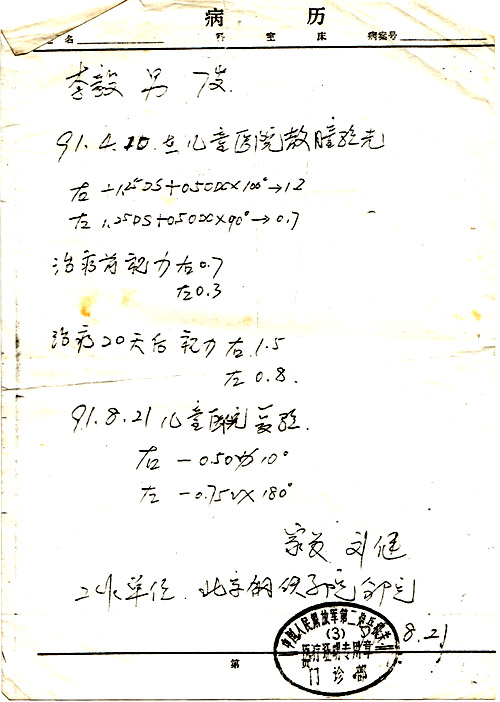 病历
名 科 室 床 病案号
李毅 男 7岁
91.4.20.在儿童医院散瞳验光
右 +1.25DS+0.50DC×100°→1.2
左 1.25DS+0.50DC×90°→0.7
治疗前视力右0.7
左0.3
治疗20天后视力右1.5
左0.8.
91.8.21儿童医院复验.
右 -0.50 10°
左 -0.75 ×180°
家长 刘健
工作单位.北京钢铁
中国人民解放军第二炮兵
(3)
8.21
医疗证明专用章
第
门诊部